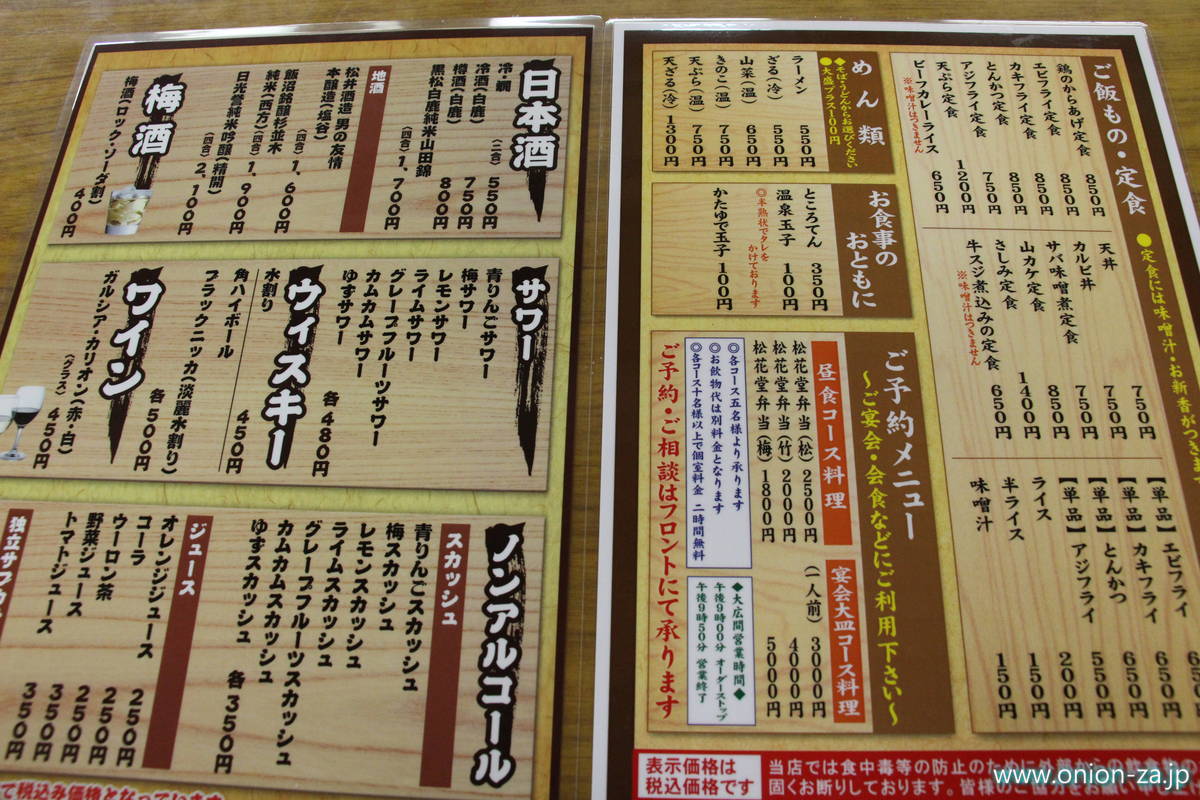 日本酒
冷・燗
冷酒(白鹿) (二合) 550円
樽酒(白鹿) 750円
黒松白鹿純米山田錦 800円
(四合) 1、700円
地酒
松井酒造 男の友情
本醸造(塩谷)
飯沼銘醸杉並木 (四合) 1、600円
純米(西方) (四合) 1、900円
日光誉純米吟醸(精開) (四合) 2、100円
梅酒
梅酒(ロック・ソーダ割) 400円
サワー
青りんごサワー
梅サワー
レモンサワー
ライムサワー
グレープフルーツサワー
カムカムサワー
ゆずサワー
各480円
ウィスキー
水割り
角ハイボール 450円
ブラックニッカ(淡麗水割り)
各500円
ワイン
ガルシア・カリオン(赤・白)
(グラス) 450円
ノンアルコール
スカッシュ
青りんごスカッシュ
梅スカッシュ
レモンスカッシュ
ライムスカッシュ
グレープフルーツスカッシュ
カムカムスカッシュ
ゆずスカッシュ
各350円
ジュース
オレンジジュース 250円
コーラ 250円
ウーロン茶 250円
野菜ジュース 350円
トマトジュース 350円
て税込み価格となっています
ご飯もの・定食
●定食には味噌汁・お新香がつきます
鶏のからあげ定食 850円
エビフライ定食 850円
カキフライ定食 850円
とんかつ定食 750円
アジフライ定食 1200円
天ぷら定食 950円
ビーフカレーライス 650円
※味噌汁はつきません
天丼 750円
カルビ丼 750円
サバ味噌煮定食 750円
山カケ定食 850円
さしみ定食 1400円
牛スジ煮込みの定食 650円
※味噌汁はつきません
【単品】エビフライ 650円
【単品】カキフライ 650円
【単品】とんかつ 550円
【単品】アジフライ 200円
ライス 150円
半ライス 150円
味噌汁
めん類
◆そば・うどんからお選びください
●大盛プラス100円
ラーメン 550円
ざる(冷) 550円
山菜(温) 650円
きのこ(温) 750円
天ぷら(温) 750円
天ざる(冷) 1300円
お食事のおともに
ところてん 350円
温泉玉子 100円
◎半熟状でタレをかけております
かたゆで玉子 100円
ご予約メニュー
～ご宴会・会食などにご利用下さい～
昼食コース料理
松花堂弁当(松) 2500円
松花堂弁当(竹) 2000円
松花堂弁当(梅) 1800円
宴会大皿コース料理
(一人前) 3000円
4000円
5000円
◎各コース五名様より承ります
◎お飲物代は別料金となります
◎各コース十名様以上で個室料金 二時間無料
◆大広間営業時間◆
午後9時00分 オーダーストップ
午後9時50分 営業終了
ご予約・ご相談はフロントにて承ります
表示価格は
税込価格です
当店では食中毒等の防止のために外部からの飲食物の
固くお断りしております。皆様のご協力をお願い
www.onion-za.jp